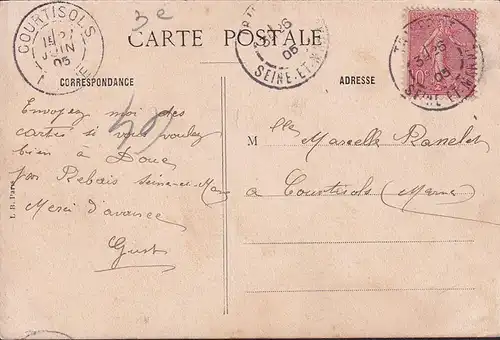 COURTISOLS
JUIN
05
3e
CARTE POSTALE
SEINE-ET-M
05
SEINE-ET-M
05
10c
CORRESPONDANCE
ADRESSE
Envoyez moi des
cartes si vous voulez
bien à Doue
par Rebais Seine et Marne
Merci d'avance
Gust
40
Mlle Marcelle Ranelet
à Courtisols (Marne)
I. B. Paris